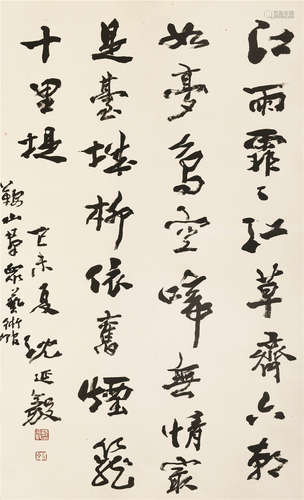 江雨霏〻江草齊六朝
如夢鳥空啼無情最
是臺城柳依舊煙籠
十里堤 己未夏沈延毅
鞍山群眾藝術館